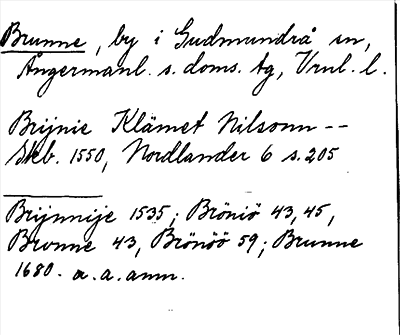 Brunne, by i Gudmundrå sn,
Ångermanl. s. doms. tg, Vnl. l.
Brijnie Klämet Nilsonn --
Skb. 1550, Nordlander 6 s. 205
Brijnnije 1535; Bröniö 43, 45,
Bronne 43, Brönöö 59; Brunne
1680. a. a. anm.